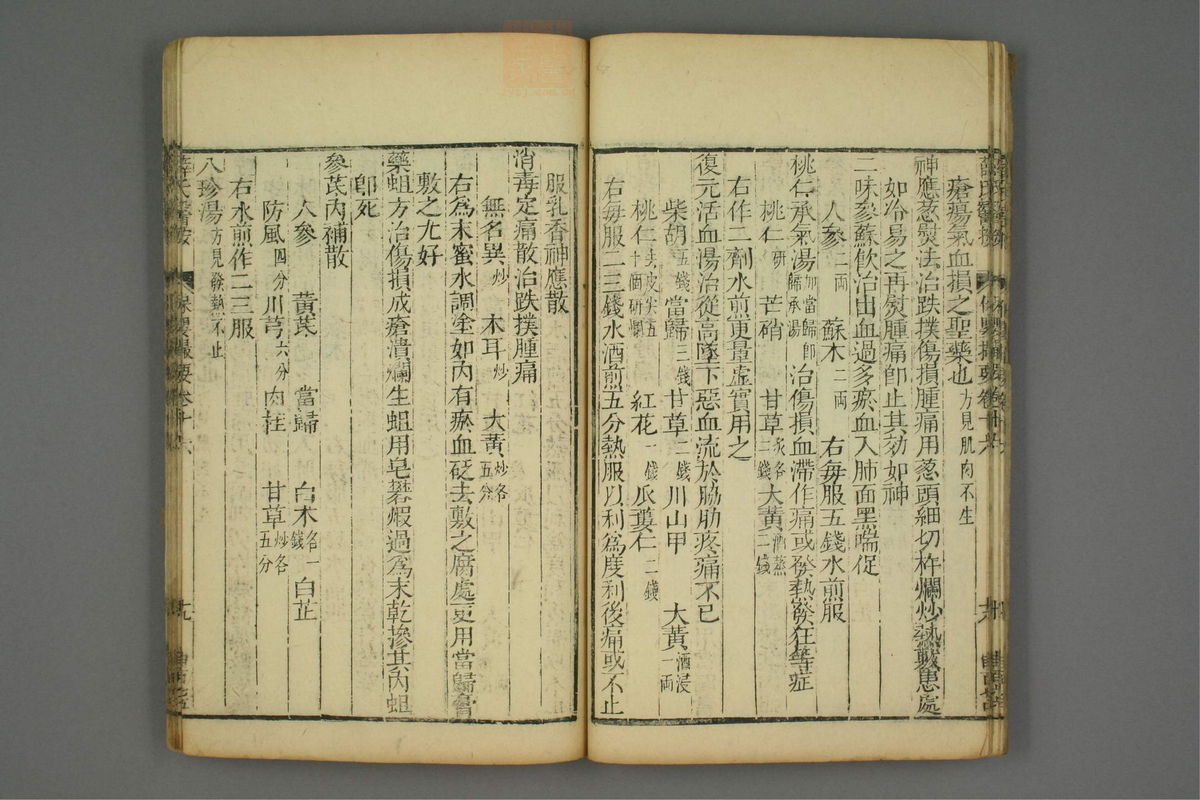 瘡瘍氣血損之聖藥也方見肌肉不生
神應葱熨法治跌撲傷損腫痛用葱頭細切杵爛炒熱敷患處
如冷易之再熨腫痛卽止其効如神
二味參蘇飲治出血過多瘀血入肺面黑喘促
人參二兩 蘇木二兩 右每服五錢水煎服
桃仁承氣湯加當歸卽歸承湯治傷損血滯作痛或發熱發狂等症
桃仁研 芒硝 甘草炙各二錢 大黃酒蒸二錢
右作二劑水煎更量虛實用之
復元活血湯治從高墜下惡血流於脇肋疼痛不已
柴胡五錢 當歸三錢 甘草二錢 川山甲 大黃酒浸一兩
桃仁去皮尖五十個研爛 紅花一錢 瓜蔞仁二錢
右每服二三錢水酒煎五分熱服以利爲度利後痛或不止
服乳香神應散
消毒定痛散治跌撲腫痛
無名異炒 木耳炒 大黃炒各五分
右爲末蜜水調塗如內有瘀血砭去敷之腐處更用當歸膏
敷之尤好
藥蛆方治傷損成瘡潰爛生蛆用皂礬煅過爲末乾摻其內蛆
卽死
參芪內補散
人參 黃芪 當歸 白朮各一錢 白芷
防風四分 川芎六分 肉桂 甘草炒各五分
右水煎作二三服
八珍湯方見發熱不止
薛氏醫按 保嬰撮要卷十六